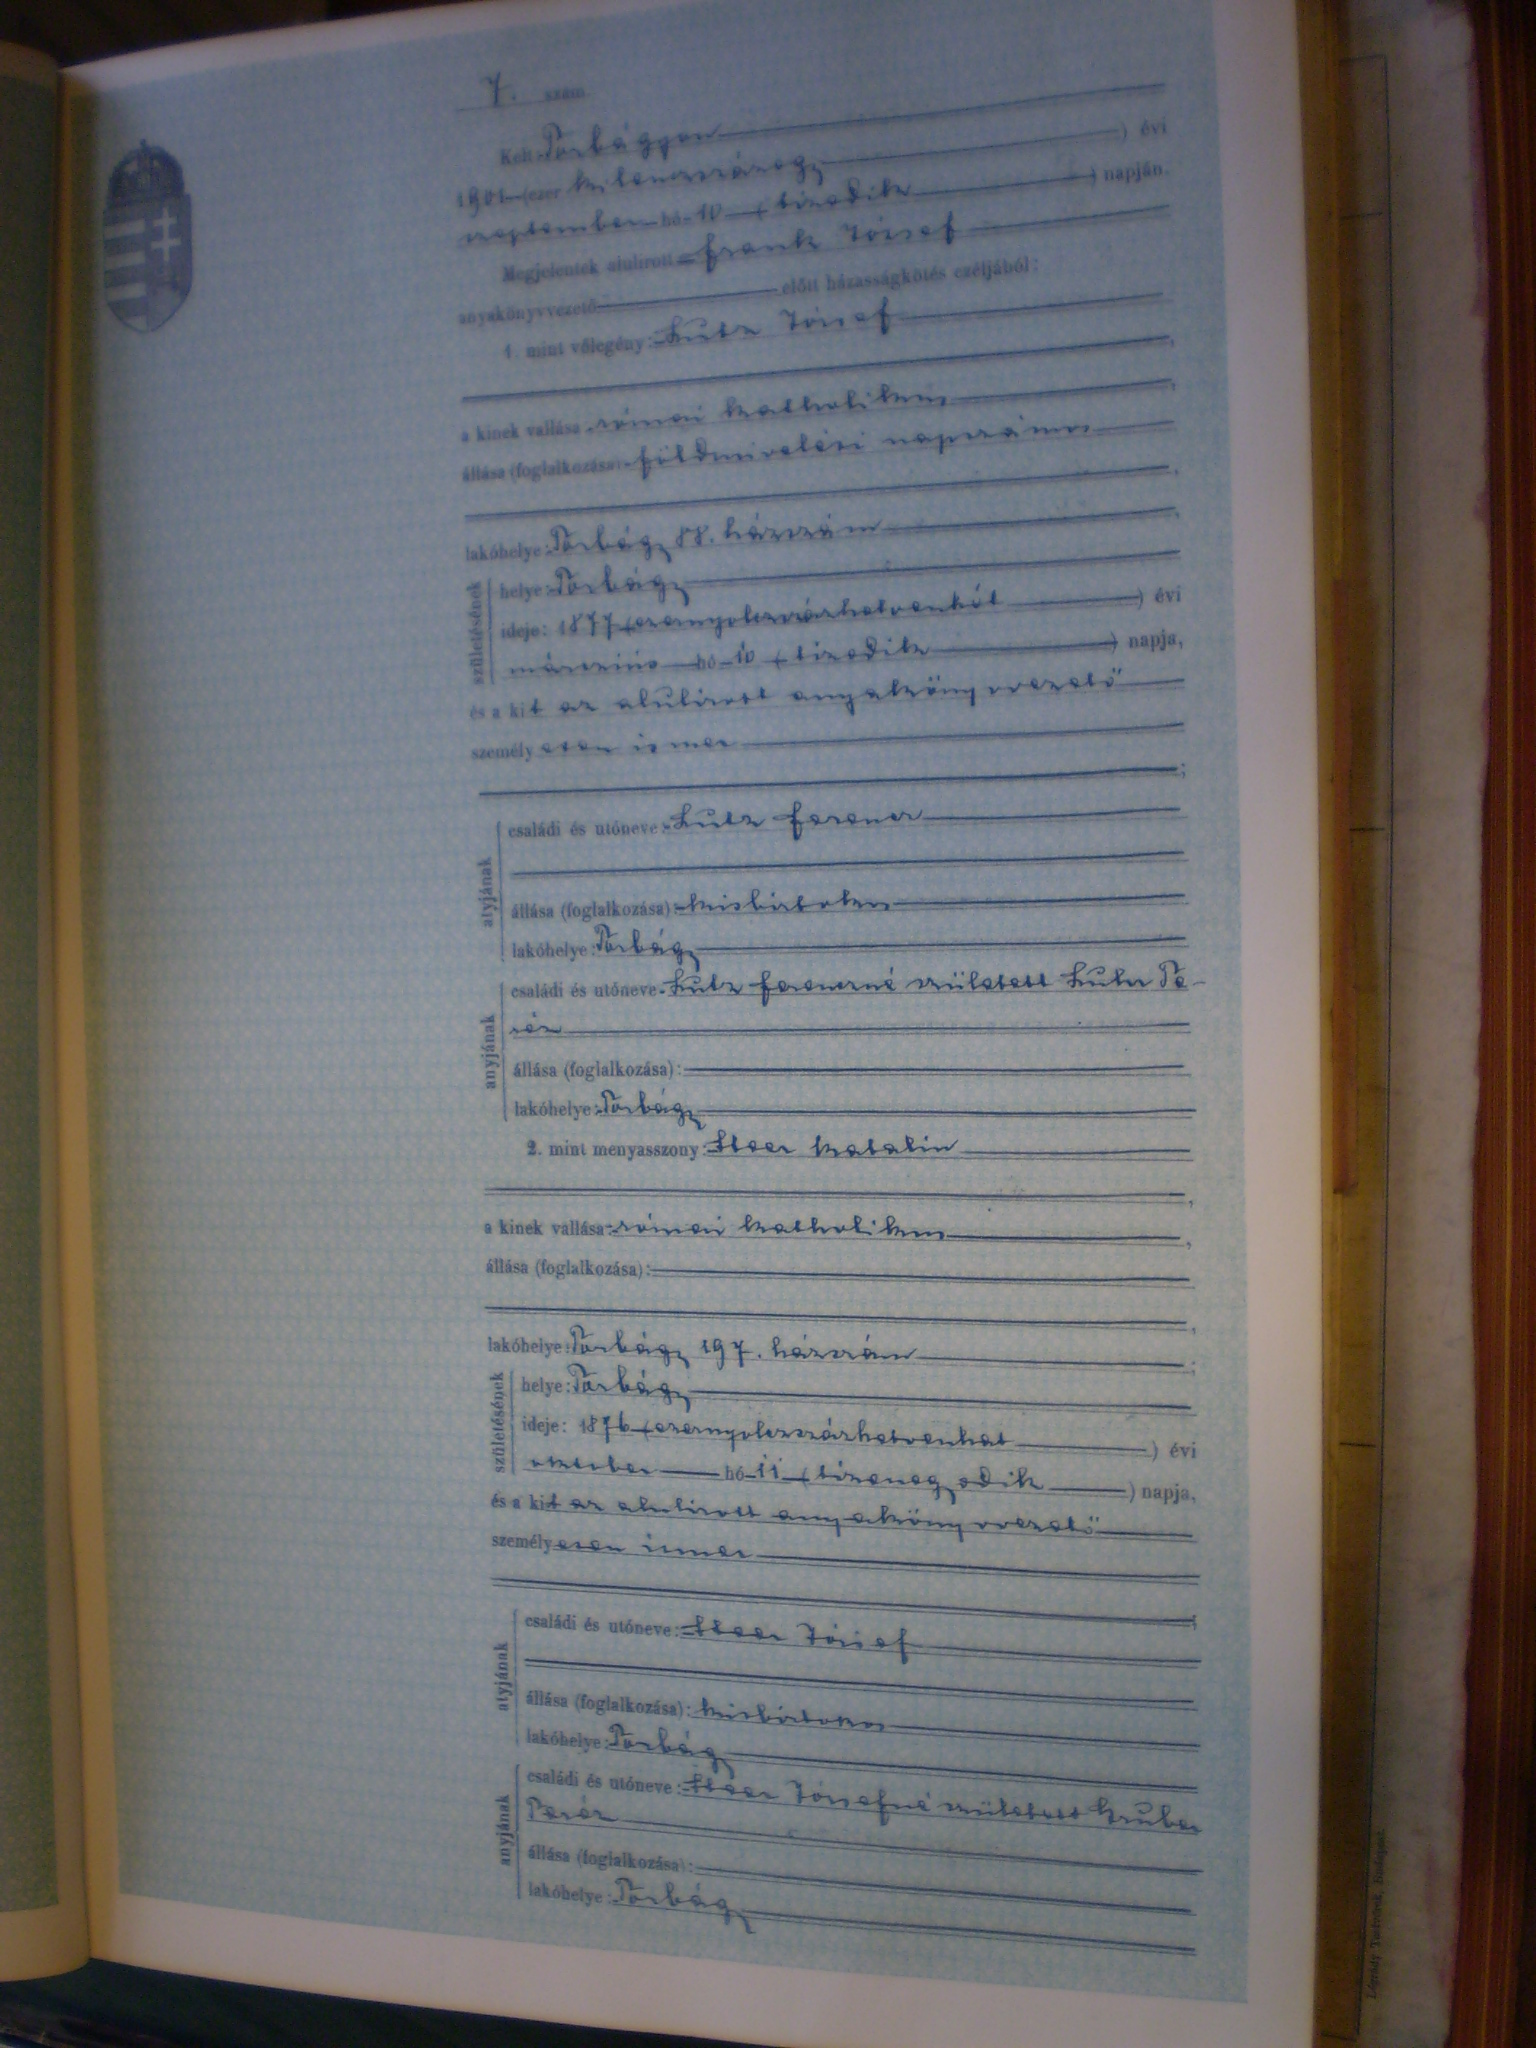 7. szám
Kelt Torbágyon
1901 (ezer kilenczszázegy) évi
szeptember hó 10 (tizedik) napján.
Megjelentek alulirott Frank József
anyakönyvvezető előtt házasságkötés czéljából:
1. mint vőlegény: Lutz József
a kinek vallása római katholikus,
állása (foglalkozása): földmivelési napszámos
lakóhelye: Torbágy 88. házszám
születésének
helye: Torbágy
ideje: 1877 (ezernyolczszázhetvenhét) évi
márczius hó 10 (tizedik) napja,
és a kit az alulirott anyakönyvvezető
személyesen ismer
;
atyjának
családi és utóneve: Lutz Ferencz
állása (foglalkozása): kisbirtokos
lakóhelye: Torbágy
anyjának
családi és utóneve: Lutz Ferenczné született Te-
réz
állása (foglalkozása):
lakóhelye: Torbágy
2. mint menyasszony: Katalin
,
a kinek vallása: római katholikus,
állása (foglalkozása):
,
lakóhelye: Torbágy 197. házszám;
születésének
helye: Torbágy
ideje: 1876 (ezernyolczszázhetvenhat) évi
október hó 11 (tizenegyedik) napja,
és a kit az alulirott anyakönyvvezető
személyesen ismer
;
atyjának
családi és utóneve: József
állása (foglalkozása): kisbirtokos
lakóhelye: Torbágy
anyjának
családi és utóneve: Józsefné született Gruber
Teréz
állása (foglalkozása):
lakóhelye: Torbágy